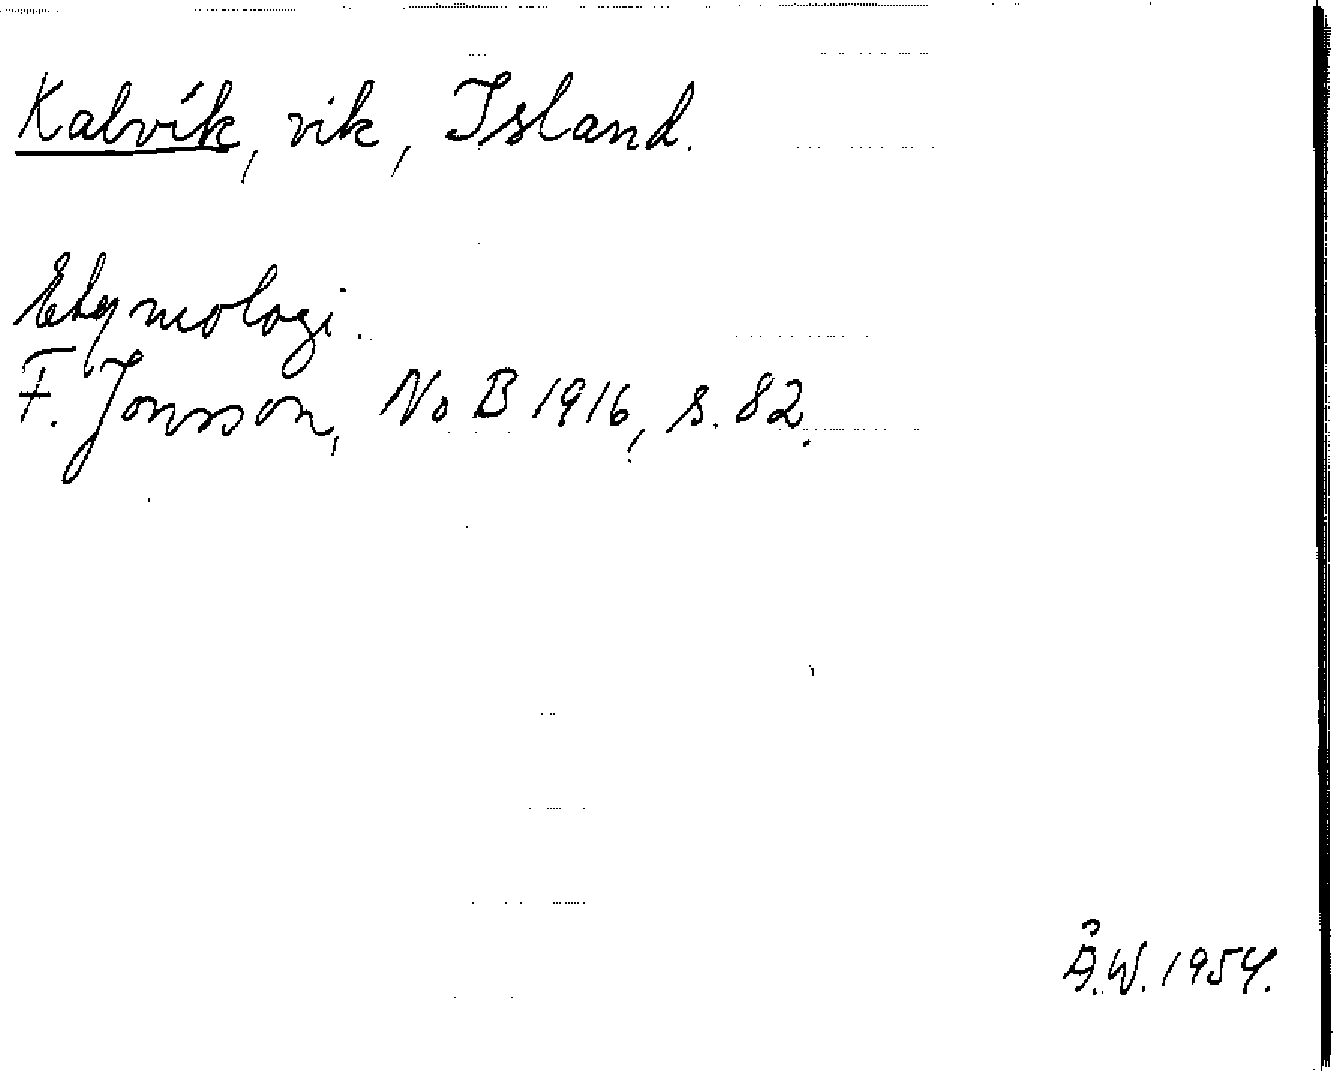 Kalvík, vik, Island.
Etymologi.
F. Jónsson, NoB 1916, s. 82.
Å.W. 1954.